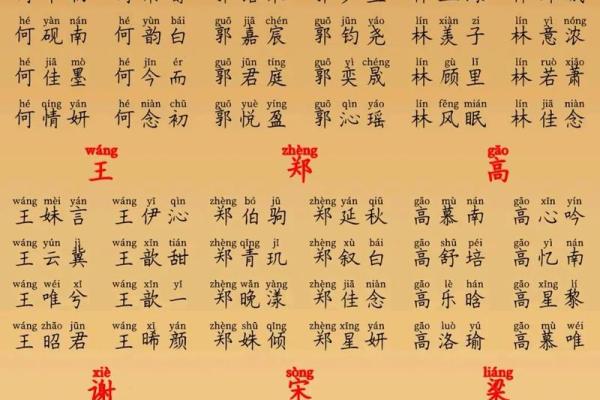 hé yàn nán hé yùn bái guō jiā chén guō jūn yáo lín xiàn zi lín yì nóng
何砚南 何韵白 郭嘉宸 郭钧尧 林羡子 林意浓
hé jiā mò hé jīn ér guō jūn tíng guō yì chéng lín gù lǐ lín ruò xiāo
何佳墨 何今而 郭君庭 郭奕晟 林顾里 林若萧
hé qíng yán hé niàn chū guō yuè yíng guō qìn yáo lín fēng mián lín jiā niàn
何情妍 何念初 郭悦盈 郭沁瑶 林风眠 林佳念
wáng zhèng gāo
王 郑 高
wáng mèi yán wáng yī qìn zhèng bó jū zhèng yán qiū gāo mù nán gāo xīn yín
王妹言 王伊沁 郑伯驹 郑延秋 高慕南 高心吟
wáng yún jì wáng xīn tián zhèng qīng jī zhèng xù bái gāo shū péi gāo yì nán
王云冀 王歆甜 郑青玑 郑叙白 高舒培 高忆南
wáng wéi xī wáng xīn yī zhèng wǎn yàng zhèng jiā niàn gāo lè hán gāo xīng lí
王唯兮 王歆一 郑晚漾 郑佳念 高乐晗 高星黎
wáng zhāo jūn wáng xī yán zhèng shū qīng zhèng xīng yán gāo luò yú gāo mù wéi
王昭君 王晞颜 郑姝倾 郑星妍 高洛瑜 高慕唯
xiè sòng liáng
谢 宋 梁